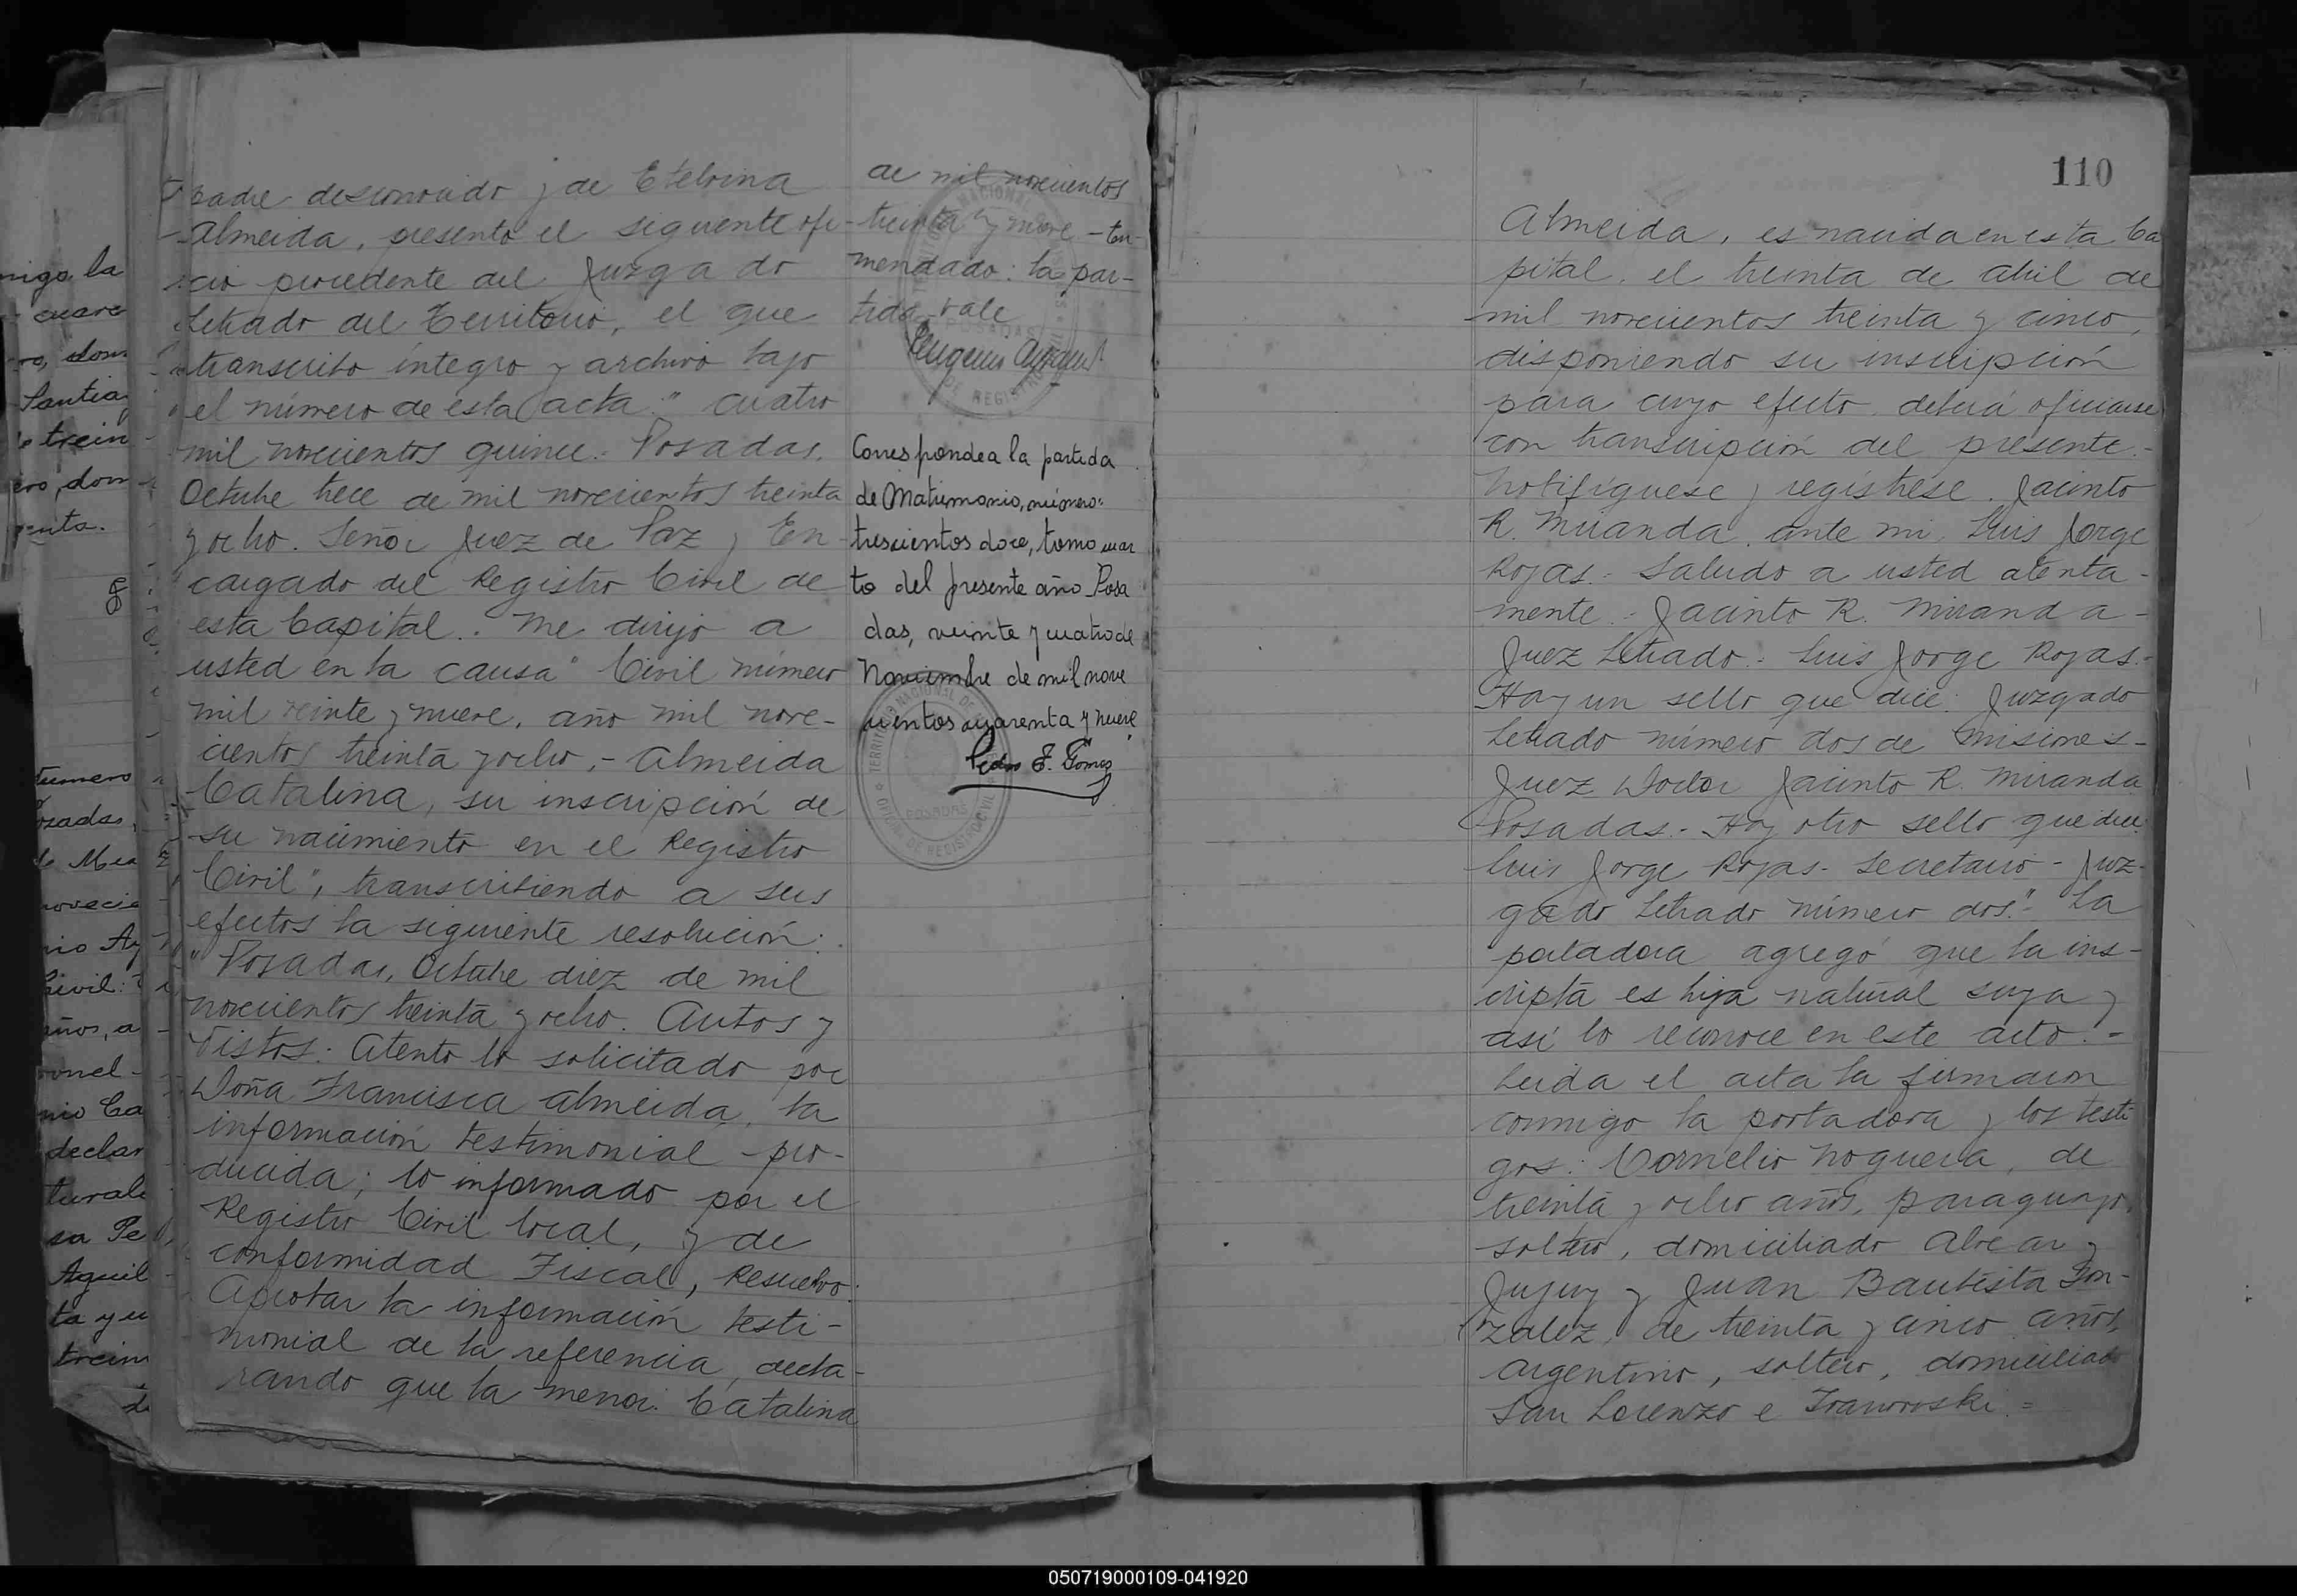 padre desconocido y de Etelvina
Almeida, presentó el siguiente ofi-
cio procedente del Juzgado
Letrado del Territorio, el que
transcribo íntegro y archivo bajo
el número de esta acta." cuatro
mil novecientos quince.- Posadas,
Octubre trece de mil novecientos treinta
y ocho. Señor Juez de Paz y En-
cargado del Registro Civil de
esta Capital.. Me dirijo a
usted en la causa "Civil número
mil veinte y nueve, año mil nove-
cientos treinta y ocho,- Almeida
Catalina, su inscripción de
su nacimiento en el Registro
Civil", transcribiendo a sus
efectos la siguiente resolución:
"Posadas, Octubre diez de mil
novecientos treinta y ocho. Autos y
Vistos: Atento lo solicitado por
Doña Francisca Almeida, la
información testimonial pro-
ducida; lo informado por el
Registro Civil local, y de
conformidad Fiscal, Resuelvo:
Aprobar la información testi-
monial de la referencia, decla-
rando que la menor: Catalina
de mil novecientos
treinta y nueve.-En-
mendado: la par-
tida-vale
Corresponde a la partida
de Matrimonio, número:
trescientos doce, tomo cuar
to del presente año Posa
das, veinte y cuatro de
Noviembre de mil nove
cientos cuarenta y nueve
Pedro F. Gómez
TERRITORIO NACIONAL DE
OFICINA DE REGISTRO CIVIL
POSADAS
110
Almeida, es nacida en esta Ca
pital, el treinta de abril de
mil novecientos treinta y cinco,
disponiendo su inscripción
para cuyo efecto deberá oficiarse
con transcripción del presente.-
Notifíquese y regístrese. Jacinto
R. Miranda, ante mi, Luis Jorge
Rojas.- Saludo a usted atenta-
mente.- Jacinto R. Miranda-
Juez Letrado.- Luis Jorge Rojas.-
Hay un sello que dice: Juzgado
Letrado número dos de Misiones-
Juez Doctor Jacinto R. Miranda
Posadas.- Hay otro sello que dice:
Luis Jorge Rojas- Secretario- Juz-
gado Letrado número dos."- La
portadora agregó que la ins-
cripta es hija natural suya y
así lo reconoce en este acto.-
Leida el acta la firmaron
conmigo la portadora y los testi
gos: Cornelio Noguera, de
treinta y ocho años, paraguayo,
soltero, domiciliado Alvear y
Jujuy y Juan Bautista Gon-
zalez, de treinta y cinco años,
argentino, soltero, domiciliado
San Lorenzo e Iranvoski.=
050719000109-041920